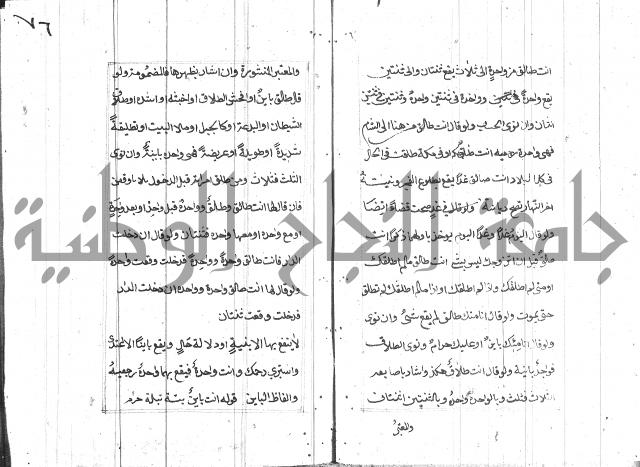 ٧٦
انت طالق من واحدة الى ثلاث يقع ثنتان والى ثنتين
يقع واحدة وواحدة في ثنتين واحدة وثنتين في ثنتين
ثنتان وان نوى الحساب ولو قال انت طالق من هنا الى الشام
فهي واحدة رجعية انت طالق او في مكة طلقت في الحال
في كل البلاد انت طالق غدا يقع بطلوع الفجر ونية
اخر النهار تصح ديانة ولو قال في غد صحت قضاء ايضا
ولو قال اليوم غدا وغدا اليوم
طالق قبل ان اتزوجك ليس بشئ انت طالق مالم اطلقك
او متى لم اطلقك واذا لم اطلقك او اذا مالم اطلقك لم تطلق
حتى يموت ولو قال انا منك طالق لم يقع شئ وان نوى
ولو قال انا منك باين او عليك حرام ونوى الطلاق
فواحدة باينة ولو قال انت طالق هكذا واشار باصابعه
الثلاث فثلث وبالواحدة واحدة وبالثنتين اثنتان
والمعتبر
والمعتبر المنشورة وان اشار بظهرها فالمضمومة ولو
قال طالق باين او افحش الطلاق او اخبثه او اشده او طلاق
الشيطان او البدعة او كالجبل او ملا البيت او تطليقة
شديدة او طويلة او عريضة فهي واحدة باينة وان نوى
الثلث فثلاث ومن طلق امراته قبل الدخول ثلاثا وقعن
فان قال لها انت طالق وطالق او واحدة قبل واحدة او بعد واحدة
او مع واحدة او معها واحدة فثنتان ولو قال ان دخلت
الدار فانت طالق واحدة وواحدة فدخلت وقعت واحدة
ولو قال لها انت طالق واحدة وواحدة ان دخلت الدار
فدخلت وقعت ثنتان
لا يقع بها الا بنية او دلالة حال ويقع باينا الا اعتدي
واستبري رحمك وانت واحدة فيقع بها واحدة رجعية
والفاظ الباين قوله انت باين بتة بتلة حرام
جامعة النجاح الوطنية